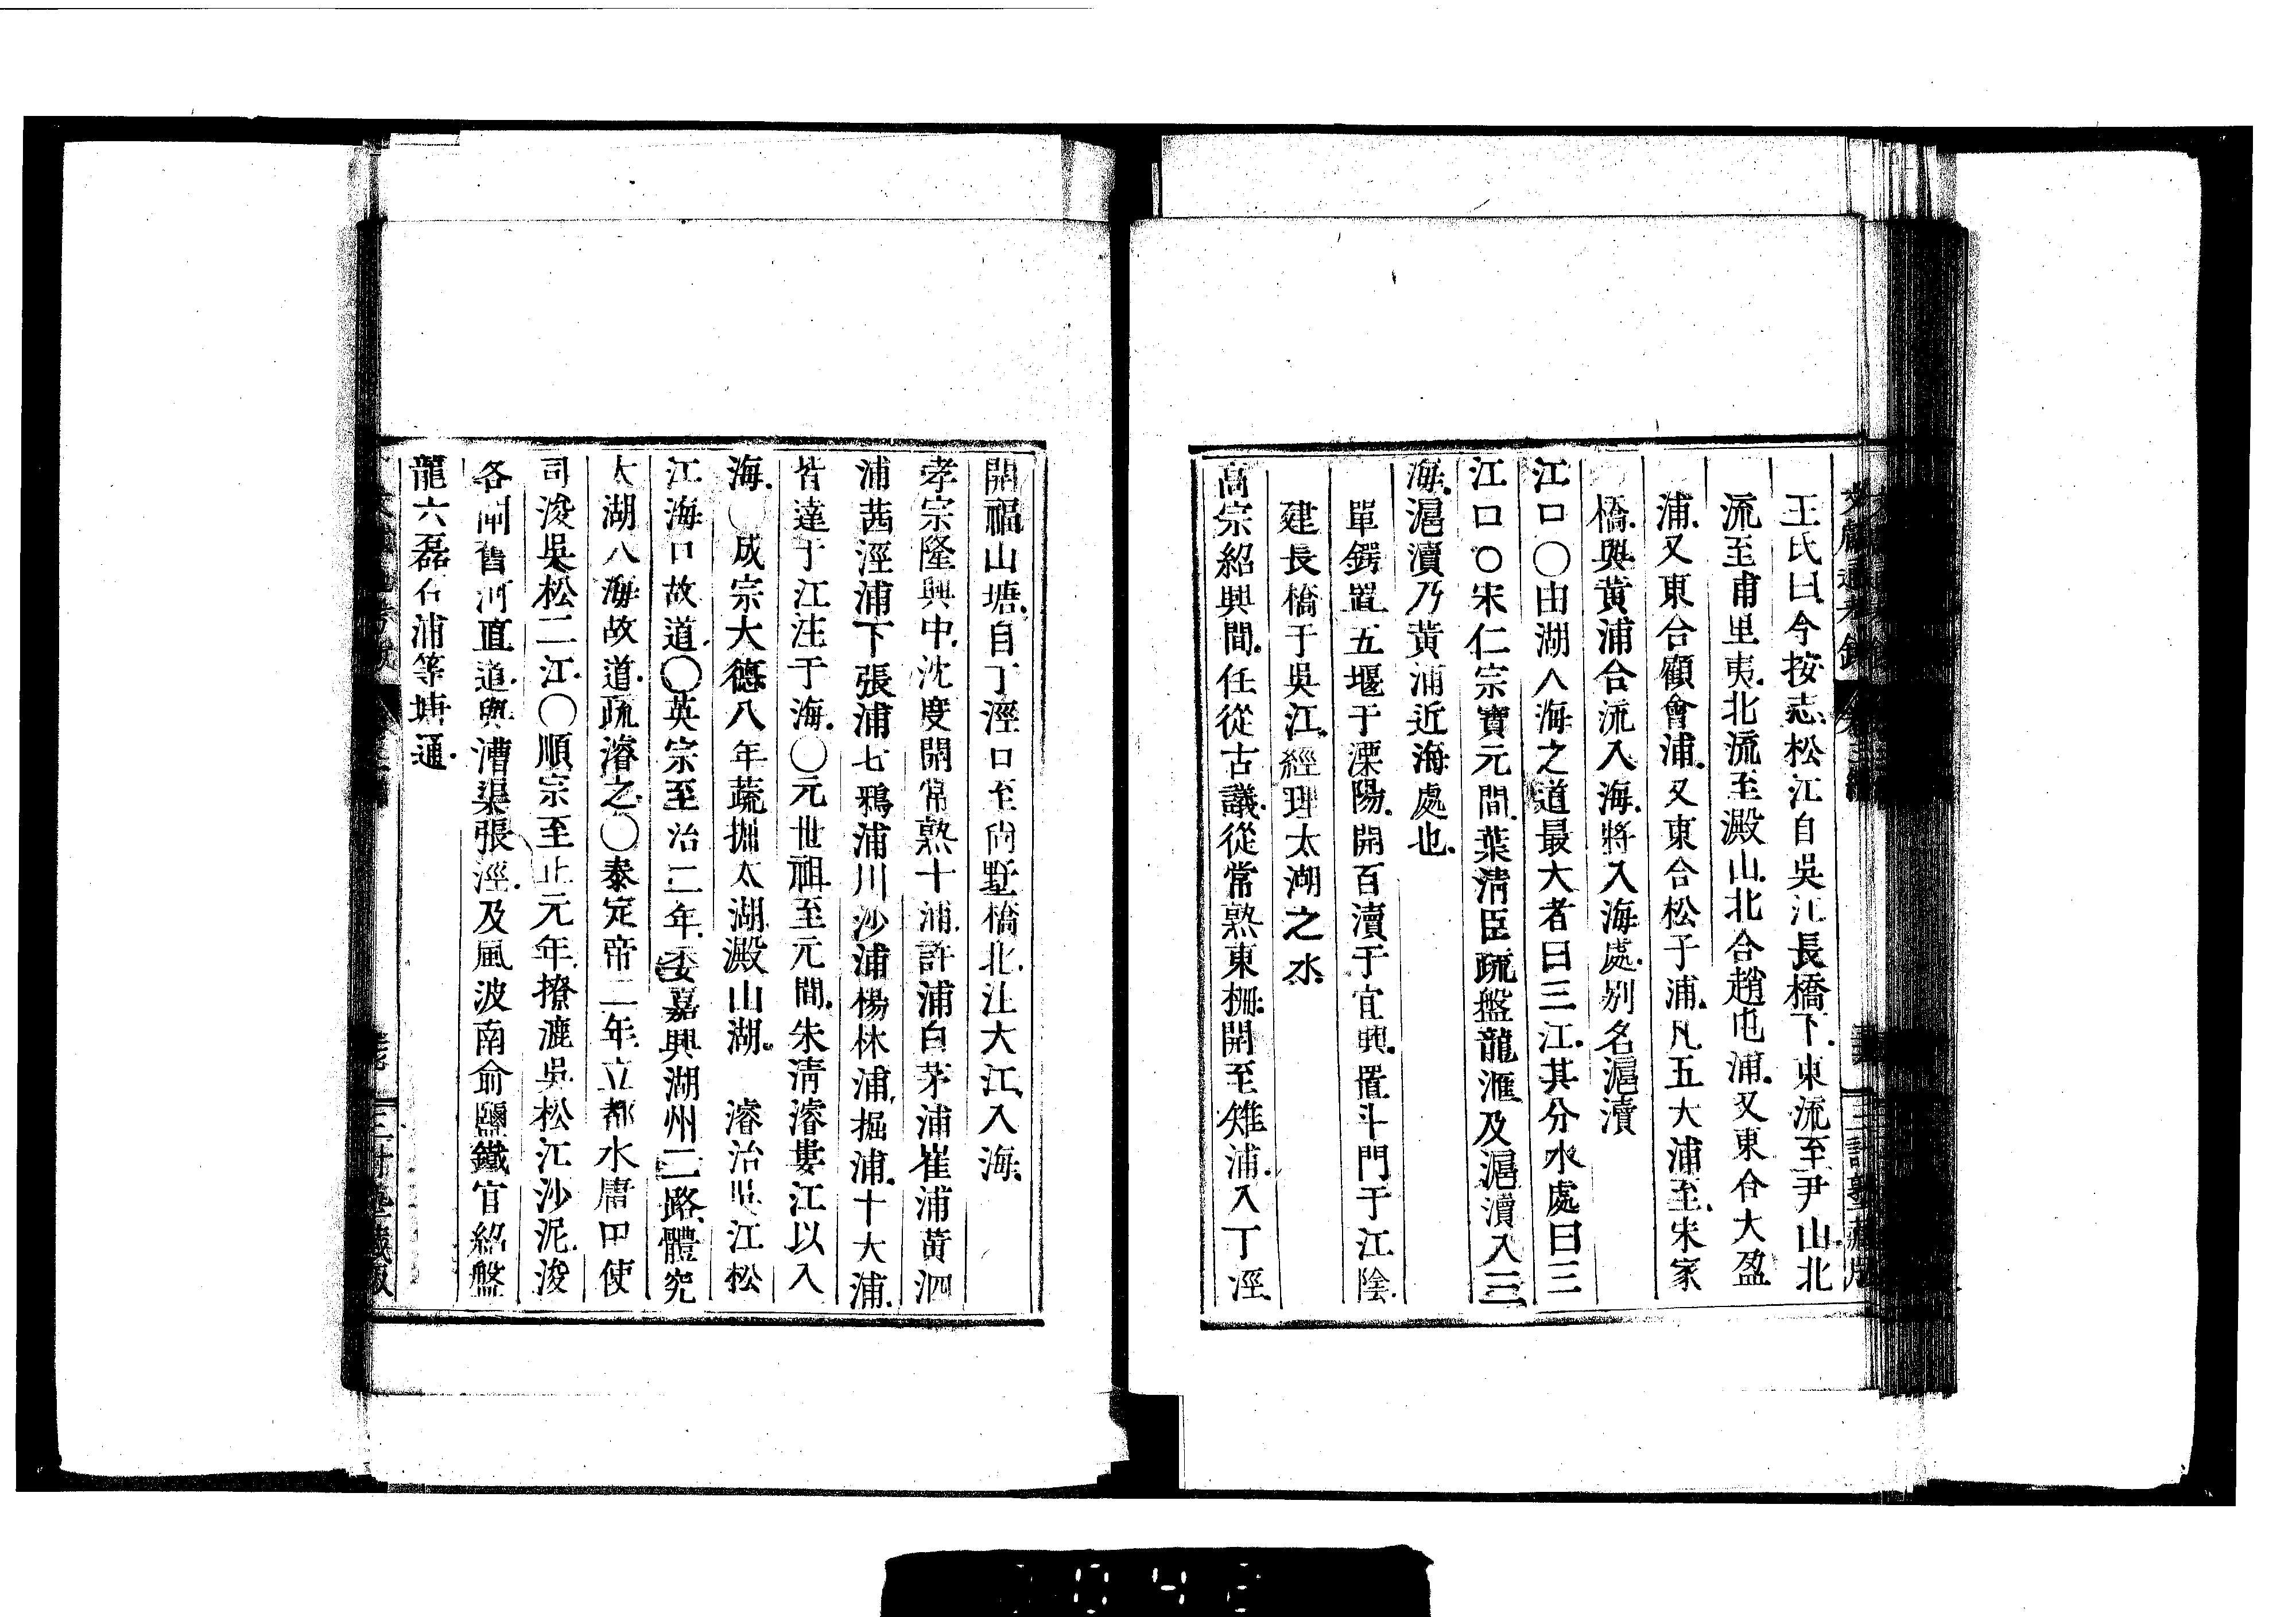 王氏曰今按志松江自吳江長橋下東流至尹山北
流至甫里夷北流至澱山北合趙屯浦又東合大盈
浦又東合顧會浦又東合松子浦凡五大浦至朱家
橋與黃浦合流入海將入海處別名滬瀆
江口〇由湖入海之道最大者曰三江其分水處曰三
江口〇宋仁宗寶元間葉淸臣疏盤龍滙及滬瀆入三
海滬瀆乃黃浦近海處也
單鍔置五堰于溧陽開百瀆于宜興置斗門于江陰
建長橋于吳江經理太湖之水
高宗紹興間任從古議從常熟東柵開至雉浦入丁涇
開福山塘自丁涇口至尙墅橋北注大江入海
孝宗隆興中沈度開常熟十浦許浦白茅浦崔浦黃泗
浦茜涇浦下張浦七鴉浦川沙浦楊林浦掘浦十大浦
皆達于江注于海〇元世祖至元間朱淸濬婁江以入
海〇成宗大德八年蔬掘太湖澱山湖 濬治吳江松
江海口故道〇英宗至治二年委嘉興湖州二路體究
太湖入海故道疏濬之〇泰定帝二年立都水庸田使
司浚吳松二江〇順宗至正元年撩漉吳松江沙泥浚
各閘舊河直道與漕渠張涇及風波南俞鹽鐵官紹盤
龍六磊石浦等塘通